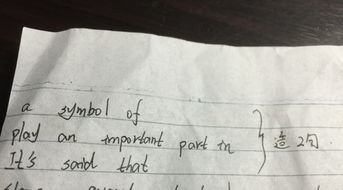 a symbol of
play an important part in } 造2句.
It's said that